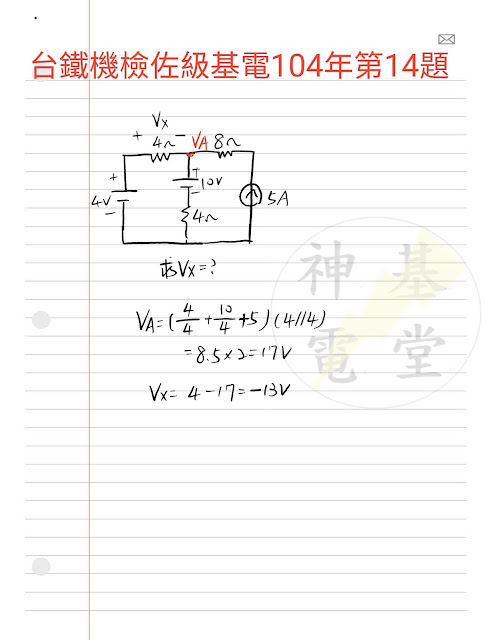 台鐵機檢佐級基電104年第14題
Vx
+ 4Ω - VA 8Ω
+ + 10V
4V - 5A
- 4Ω
求Vx=?
VA=(4/4+10/4+5)(4//4)
=8.5×2=17V
Vx= 4-17=-13V
神基
電堂